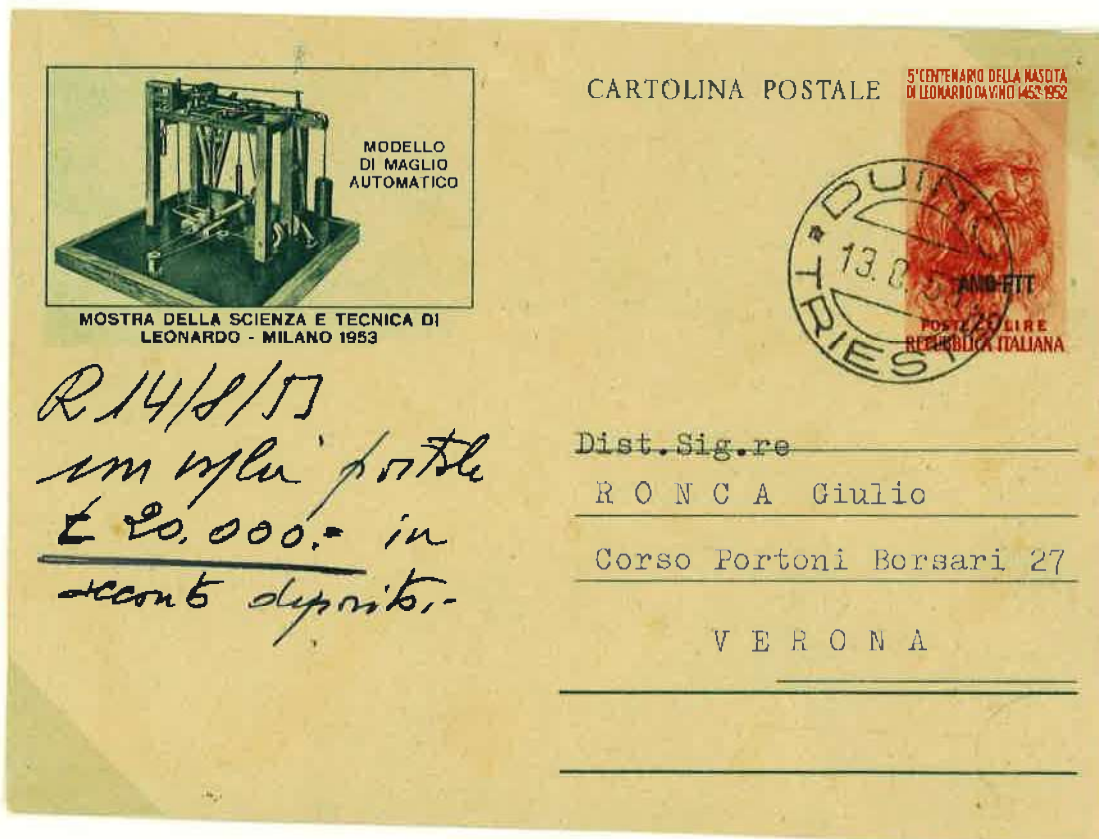 MODELLO
DI MAGLIO
AUTOMATICO
MOSTRA DELLA SCIENZA E TECNICA DI
LEONARDO - MILANO 1953
CARTOLINA POSTALE
5° CENTENARIO DELLA NASCITA
DI LEONARDO DA VINCI 1452-1952
DUIN
13.8.5
TRIEST
AMG-FTT
POSTE 20 LIRE
REPUBBLICA ITALIANA
R 14/8/53
un vaglia postale
£ 20.000.= in
acconto deposito.-
Dist.Sig.re
RONCA Giulio
Corso Portoni Borsari 27
VERONA